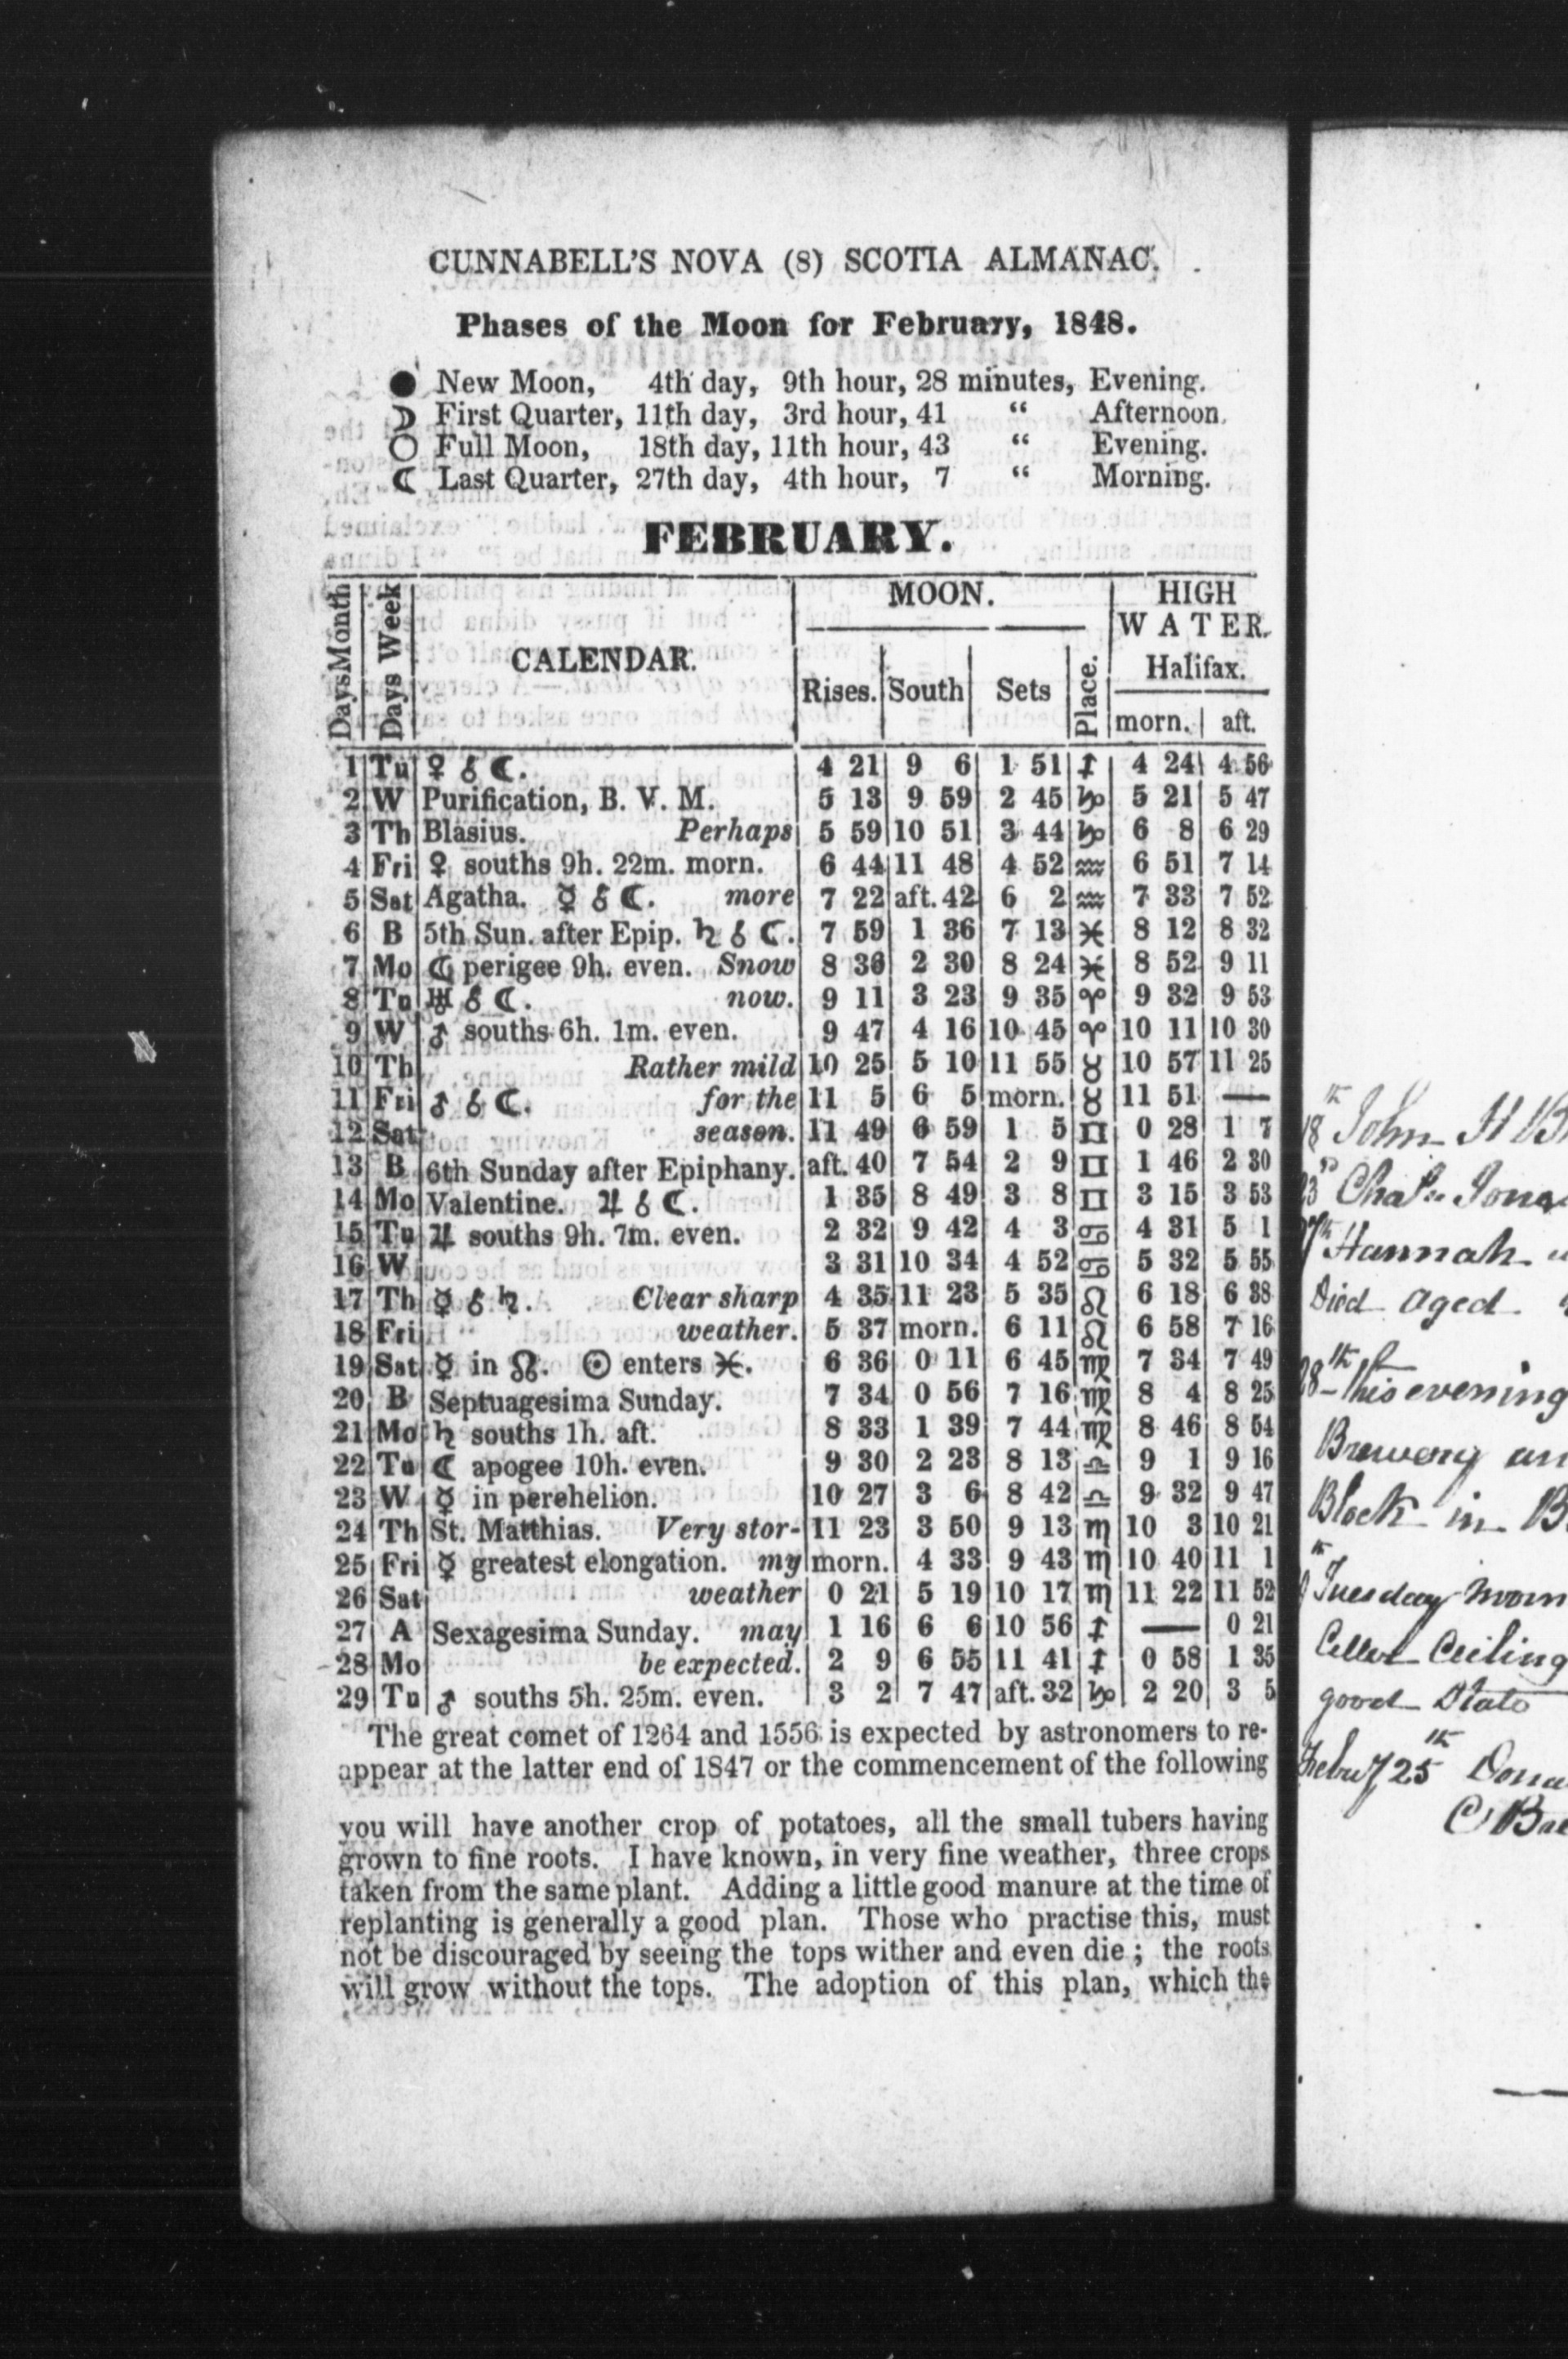 CUNNABELL'S NOVA (8) SCOTIA ALMANAC.
Phases of the Moon for February, 1848.
● New Moon, 4th day, 9th hour, 28 minutes, Evening.
☽ First Quarter, 11th day, 3rd hour, 41 “ Afternoon.
○ Full Moon, 18th day, 11th hour, 43 “ Evening.
☾ Last Quarter, 27th day, 4th hour, 7 “ Morning.
FEBRUARY.
Days Month Days Week CALENDAR. MOON. HIGH WATER. Halifax.
Rises. South Sets Place. morn. aft.
1 Tu ♀ ☌ ☾. 4 21 9 6 1 51 ♐ 4 24 4 56
2 W Purification, B. V. M. 5 13 9 59 2 45 ♑ 5 21 5 47
3 Th Blasius. Perhaps 5 59 10 51 3 44 ♑ 6 8 6 29
4 Fri ♀ souths 9h. 22m. morn. 6 44 11 48 4 52 ♒ 6 51 7 14
5 Sat Agatha. ☿ ☌ ☾. more 7 22 aft. 42 6 2 ♒ 7 33 7 52
6 B 5th Sun. after Epip. ♄ ☌ ☾. 7 59 1 36 7 13 ♓ 8 12 8 32
7 Mo ☾ perigee 9h. even. Snow 8 36 2 30 8 24 ♓ 8 52 9 11
8 Tu ♅ ☌ ☾. now. 9 11 3 23 9 35 ♈ 9 32 9 53
9 W ♂ souths 6h. 1m. even. 9 47 4 16 10 45 ♈ 10 11 10 30
10 Th Rather mild 10 25 5 10 11 55 ♉ 10 57 11 25
11 Fri ♂ ☌ ☾. for the 11 5 6 5 morn. ♉ 11 51 —
12 Sat season. 11 49 6 59 1 5 ♊ 0 28 1 7
13 B 6th Sunday after Epiphany. aft. 40 7 54 2 9 ♊ 1 46 2 30
14 Mo Valentine. ♃ ☌ ☾. 1 35 8 49 3 8 ♊ 3 15 3 53
15 Tu ♃ souths 9h. 7m. even. 2 32 9 42 4 3 ♋ 4 31 5 1
16 W 3 31 10 34 4 52 ♋ 5 32 5 55
17 Th ☿ ☌ ♄. Clear sharp 4 35 11 23 5 35 ♌ 6 18 6 38
18 Fri weather. 5 37 morn. 6 11 ♌ 6 58 7 16
19 Sat ☿ in ☊. ☉ enters ♓. 6 36 0 11 6 45 ♍ 7 34 7 49
20 B Septuagesima Sunday. 7 34 0 56 7 16 ♍ 8 4 8 25
21 Mo ♄ souths 1h. aft. 8 33 1 39 7 44 ♍ 8 46 8 54
22 Tu ☾ apogee 10h. even. 9 30 2 23 8 13 ♎ 9 1 9 16
23 W ☿ in perehelion. 10 27 3 6 8 42 ♎ 9 32 9 47
24 Th St. Matthias. Very stor- 11 23 3 50 9 13 ♏ 10 3 10 21
25 Fri ☿ greatest elongation. my morn. 4 33 9 43 ♏ 10 40 11 1
26 Sat weather 0 21 5 19 10 17 ♏ 11 22 11 52
27 A Sexagesima Sunday. may 1 16 6 6 10 56 ♐ — 0 21
28 Mo be expected. 2 9 6 55 11 41 ♐ 0 58 1 35
29 Tu ♂ souths 5h. 25m. even. 3 2 7 47 aft. 32 ♑ 2 20 3 5
The great comet of 1264 and 1556 is expected by astronomers to re-
appear at the latter end of 1847 or the commencement of the following
you will have another crop of potatoes, all the small tubers having
grown to fine roots. I have known, in very fine weather, three crops
taken from the same plant. Adding a little good manure at the time of
replanting is generally a good plan. Those who practise this, must
not be discouraged by seeing the tops wither and even die; the roots
will grow without the tops. The adoption of this plan, which the
18th John H
Hannah
Died aged
28th this evening
Brewery
Block in
Tuesday morn
Celler Ceiling
good State
25th